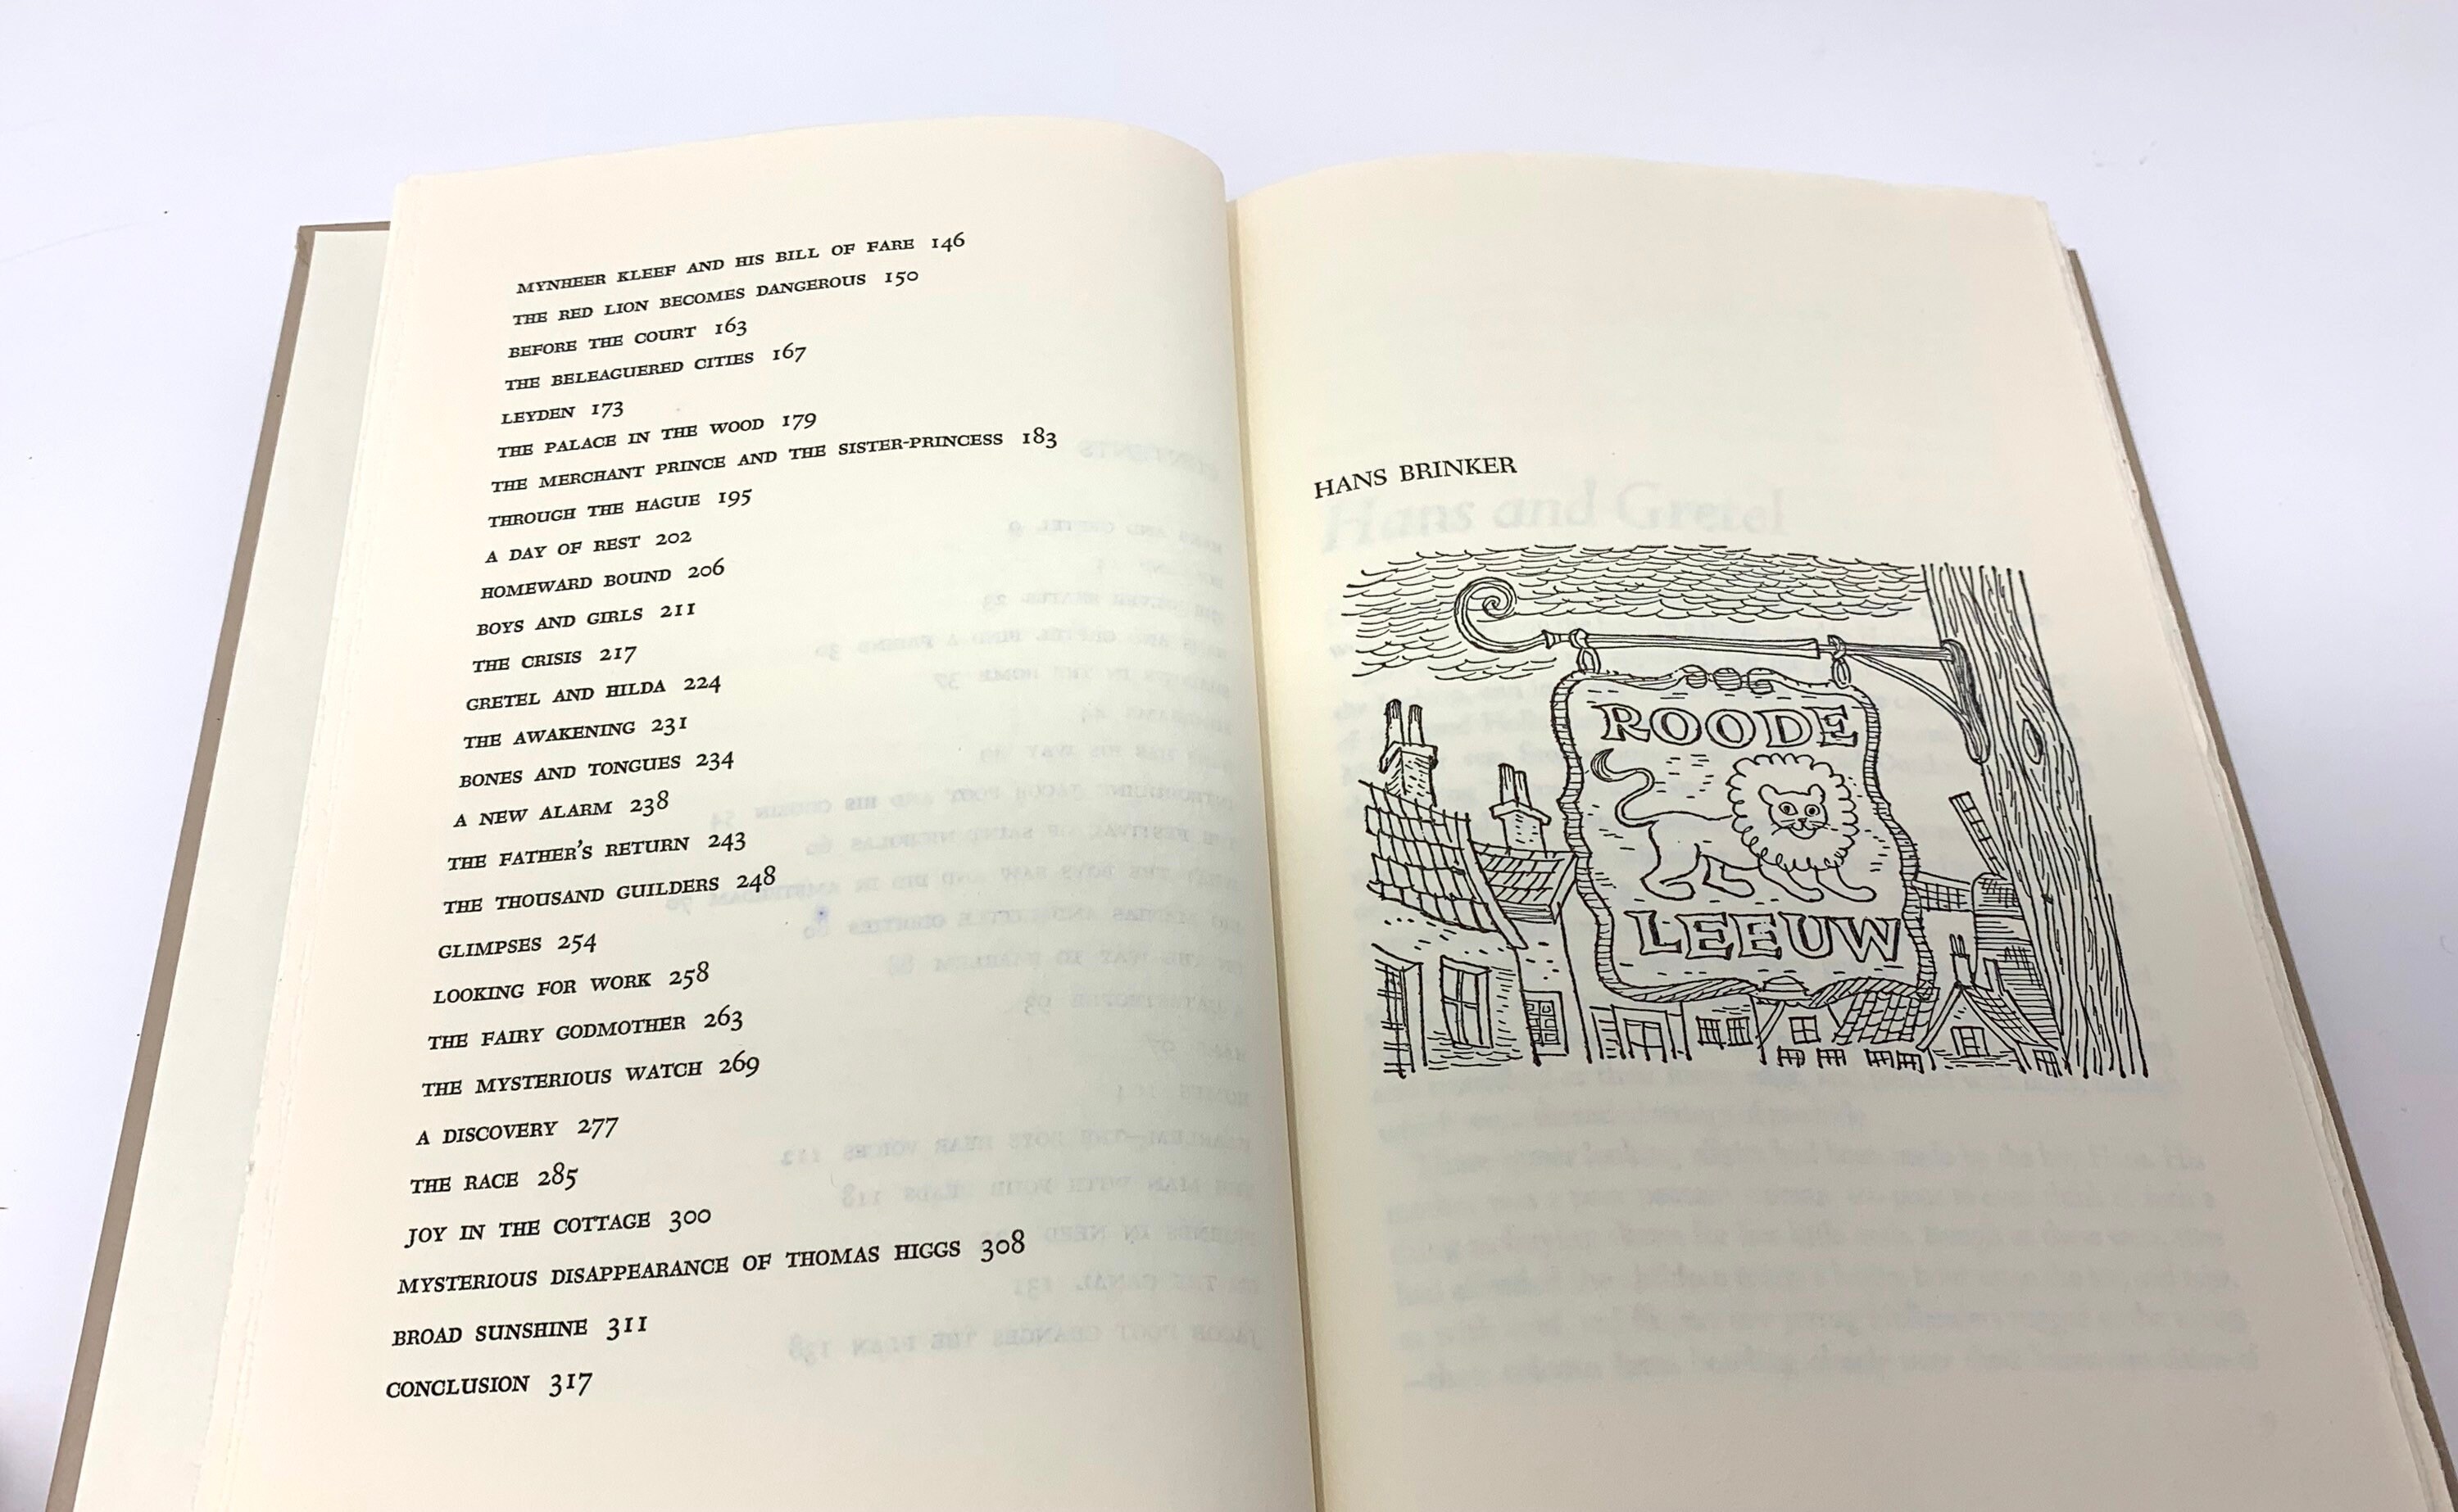 MYNHEER KLEEF AND HIS BILL OF FARE 146
THE RED LION BECOMES DANGEROUS 150
BEFORE THE COURT 163
THE BELEAGUERED CITIES 167
LEYDEN 173
THE PALACE IN THE WOOD 179
THE MERCHANT PRINCE AND THE SISTER-PRINCESS 183
THROUGH THE HAGUE 195
A DAY OF REST 202
HOMEWARD BOUND 206
BOYS AND GIRLS 211
THE CRISIS 217
GRETEL AND HILDA 224
THE AWAKENING 231
BONES AND TONGUES 234
A NEW ALARM 238
THE FATHER'S RETURN 243
THE THOUSAND GUILDERS 248
GLIMPSES 254
LOOKING FOR WORK 258
THE FAIRY GODMOTHER 263
THE MYSTERIOUS WATCH 269
A DISCOVERY 277
THE RACE 285
JOY IN THE COTTAGE 300
MYSTERIOUS DISAPPEARANCE OF THOMAS HIGGS 308
BROAD SUNSHINE 311
CONCLUSION 317
HANS BRINKER
Hans and Gretel
ROODE
LEEUW